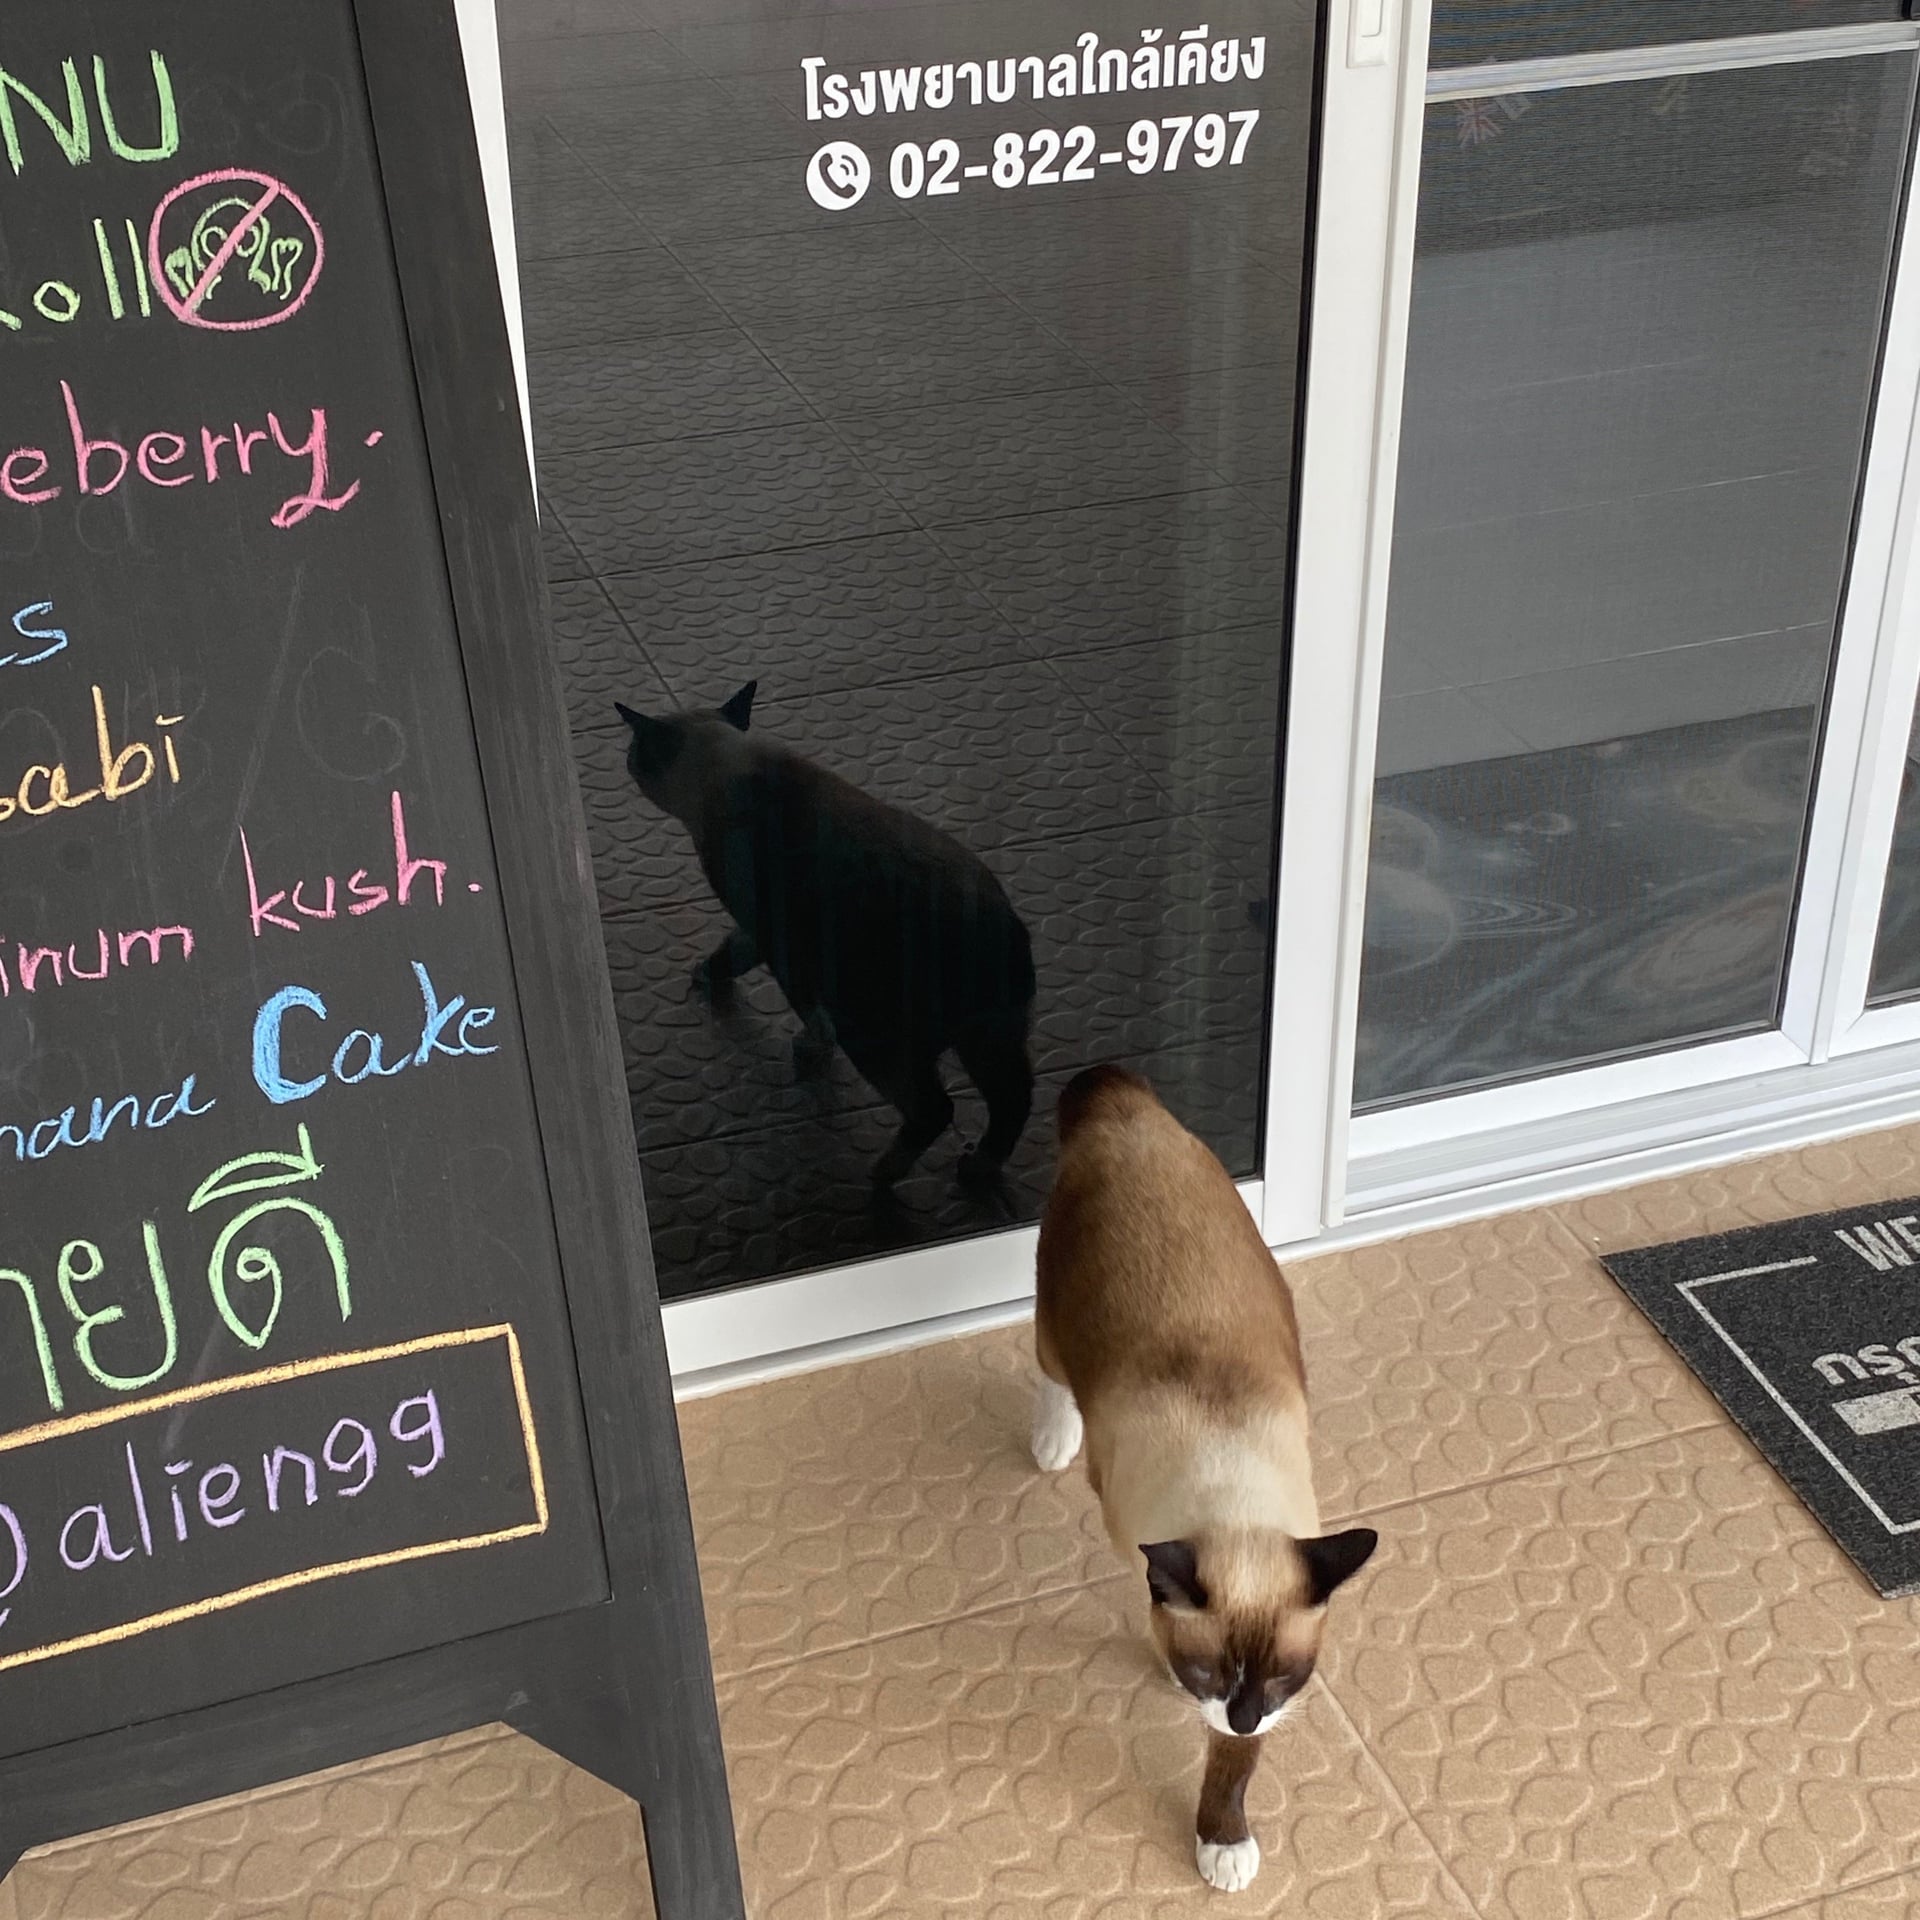 NU
oll
eberry.
s
abi
inum kush.
nana Cake
ายดี
@aliengg
โรงพยาบาลใกล้เคียง
02-822-9797
WE
กรุ